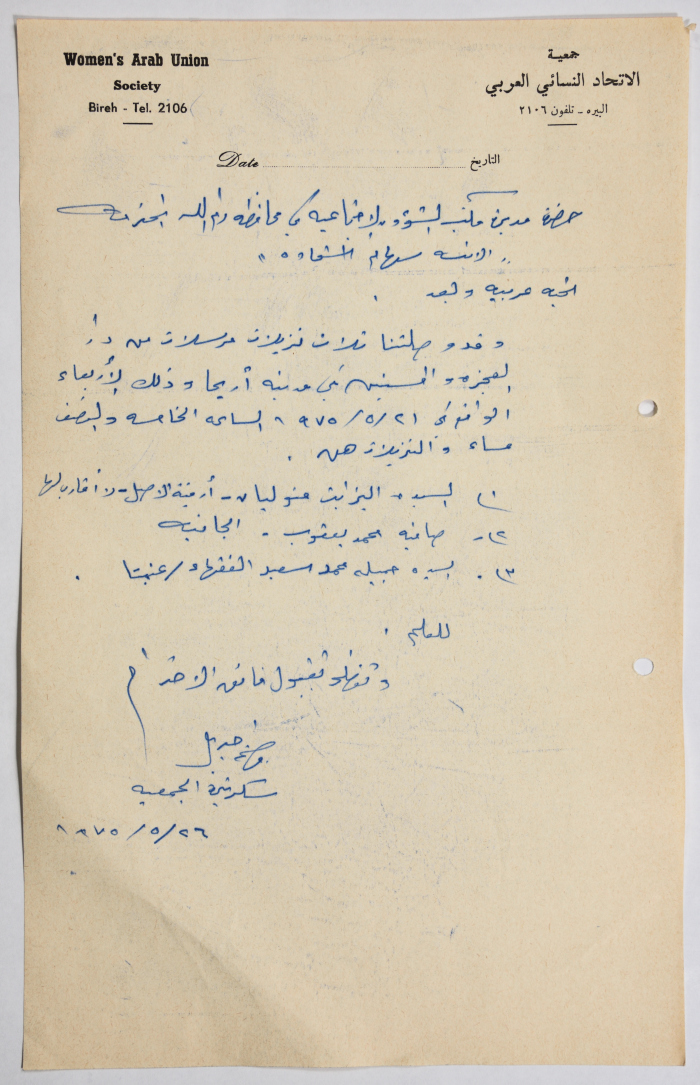 Women's Arab Union
Society
Bireh - Tel. 2106
جمعية
الاتحاد النسائي العربي
البيره - تلفون ٢١٠٦
Date التاريخ
حضرة مديرة مكتب الشؤون الاجتماعيه في محافظة رام الله المحترمه
" الآنسه سهام "
تحيه عربيه وبعد
وقد وصلتنا ثلاث نزيلات مرسلات من دار
العجزه والمسنين في مدينة أريحا وذلك الأربعاء
الواقع في ٢١/٥/١٩٧٥ الساعه الخامسه والنصف
مساء والنزيلات هن .
١) السيده اليزابيت منوليان - أرمنية الاصل - لا أقارب لها
٢- صافيه محمد يعقوب - الجانيه
٣) . السيده جميله محمد سعيد الفقهاء / عنبتا .
للعلم .
وتفضلو بقبول فائق الاحترام
سكرتيرة الجمعيه
٢٦/٥/١٩٧٥